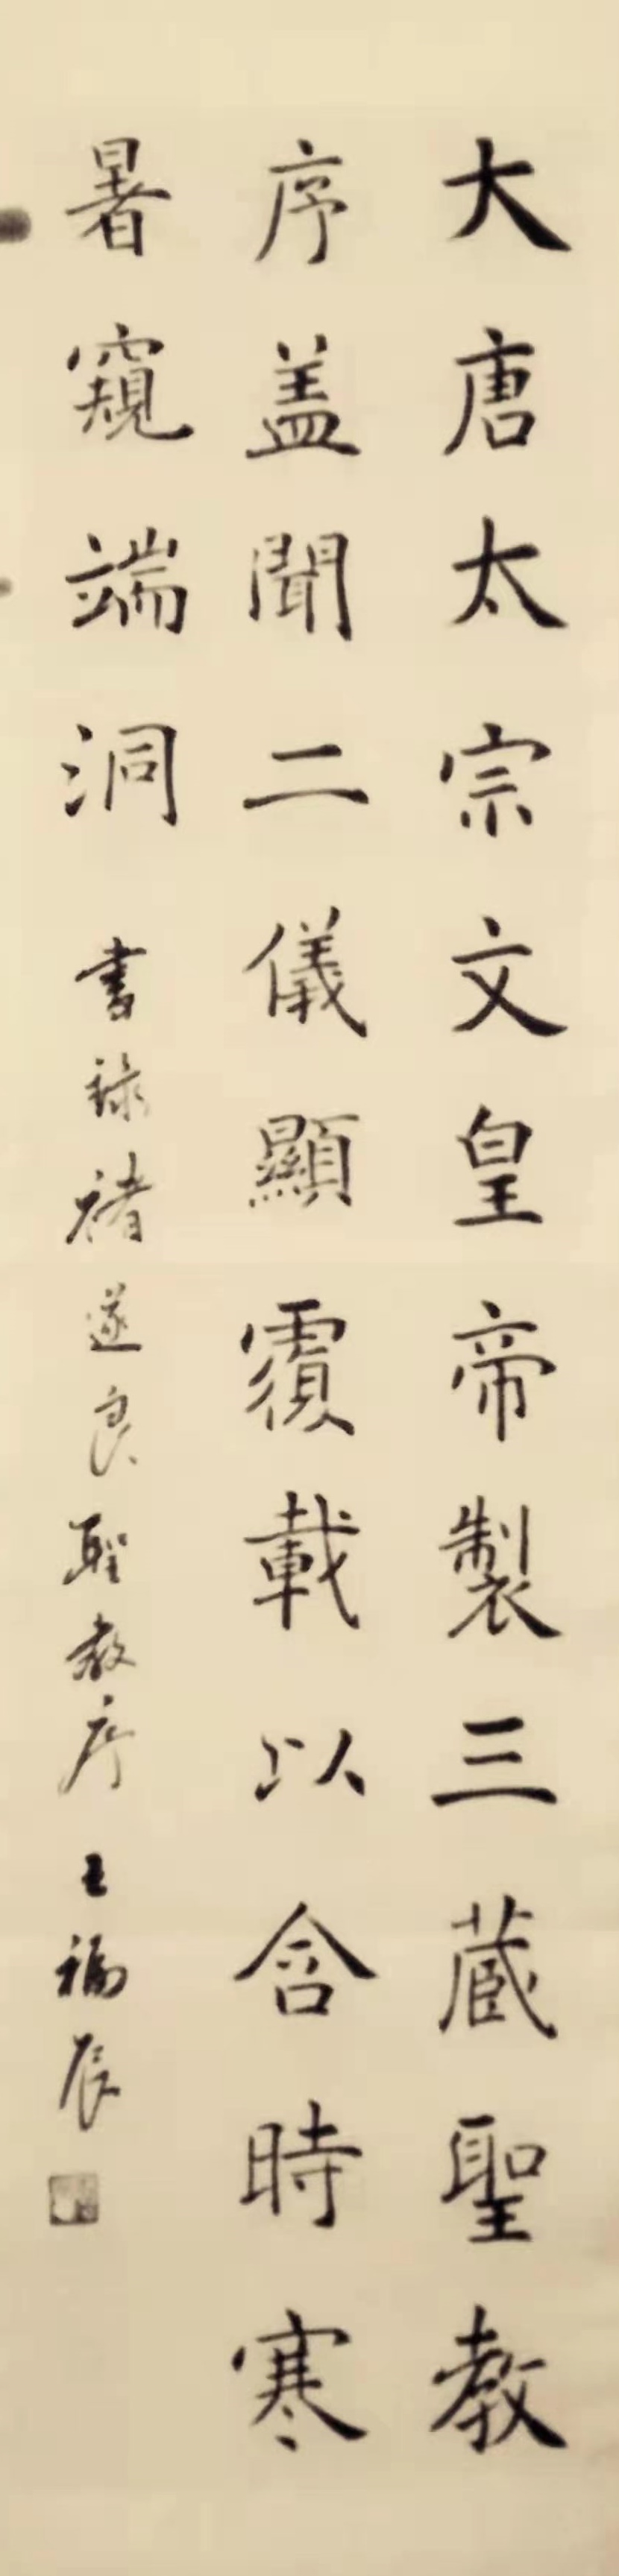 大唐太宗文皇帝製三蔵聖教
序盖聞二儀顯覆載以含時寒
暑窺端洞 書録褚遂良聖教序 王福辰